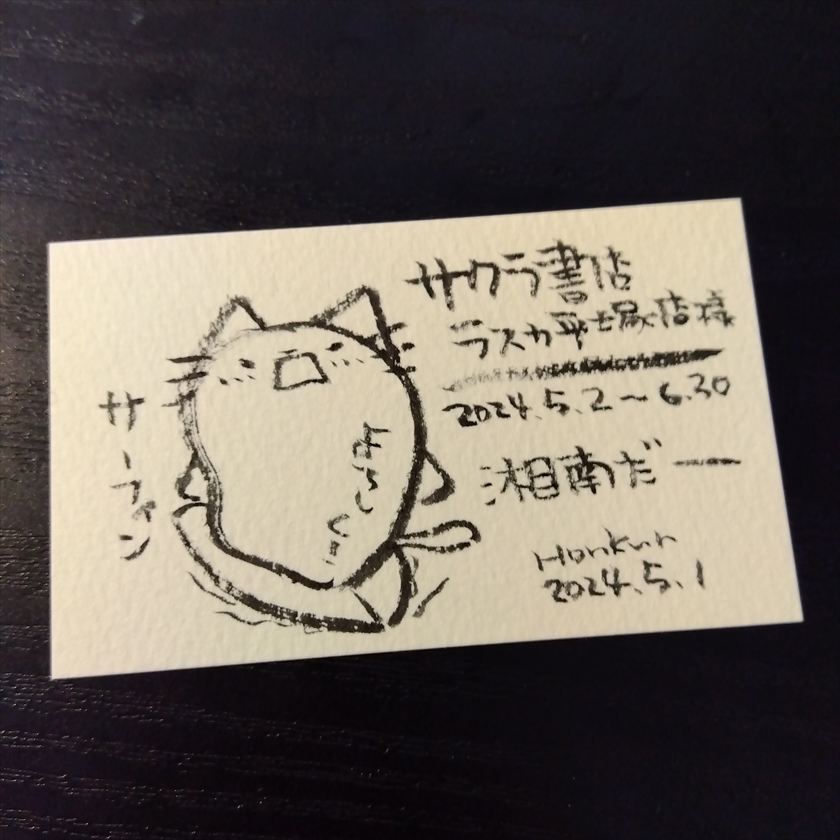 サクラ書店
ラスカ平塚店様
2024.5.2～6.30
湘南だー
Honkun
2024.5.1
サーフィン